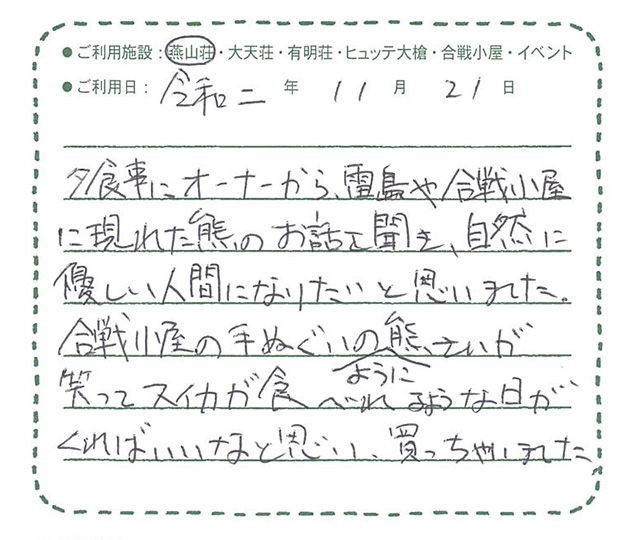 ● ご利用施設：燕山荘・大天荘・有明荘・ヒュッテ大槍・合戦小屋・イベント
● ご利用日：令和二年 11月 21日
夕食事にオーナーから、雷鳥や合戦小屋
に現れた熊のお話を聞き、自然に
優しい人間になりたいと思いました。
合戦小屋の手ぬぐいの熊さんが
ように
笑ってスイカが食べれるような日が
くればいいなと思い、買っちゃいました